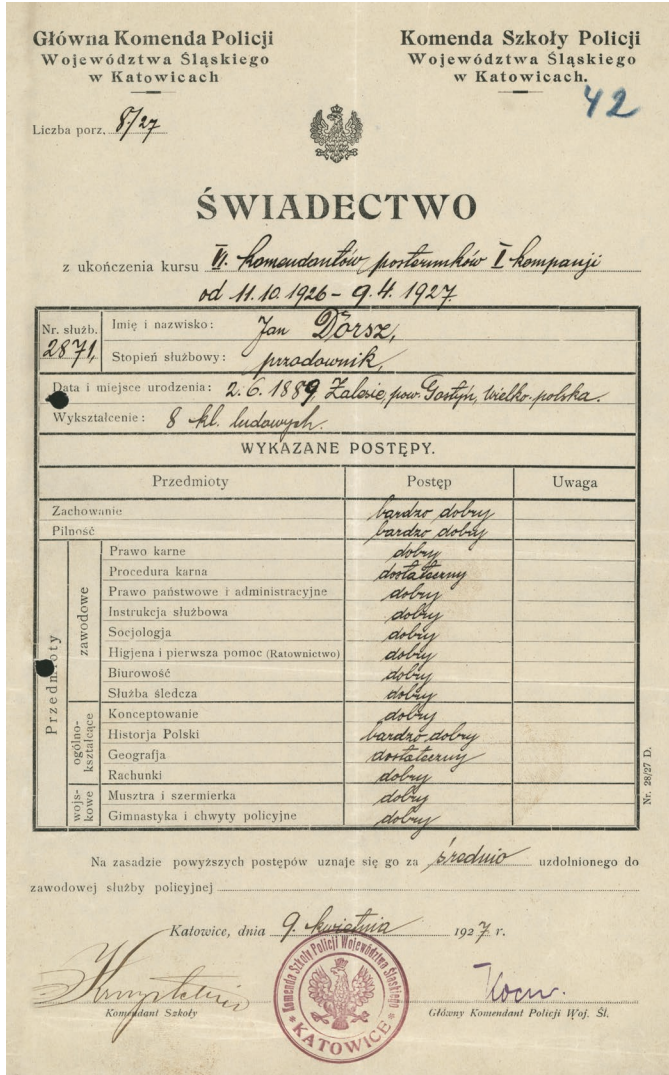 Główna Komenda Policji
Województwa Śląskiego
w Katowicach
Komenda Szkoły Policji
Województwa Śląskiego
w Katowicach.
42
Liczba porz. 8/27
ŚWIADECTWO
z ukończenia kursu VI. komendantów posterunków I kompanji
od 11.10.1926 – 9.4.1927.
Nr. służb. 2871,
Imię i nazwisko: Jan Dorsz,
Stopień służbowy: przodownik,
Data i miejsce urodzenia: 2.6.1889, Zalesie, pow. Gostyń, Wielko-polska.
Wykształcenie: 8 kl. ludowych.
WYKAZANE POSTĘPY.
Przedmioty Postęp Uwaga
Zachowanie bardzo dobry
Pilność bardzo dobry
Przedmioty
zawodowe
Prawo karne dobry
Procedura karna dostateczny
Prawo państwowe i administracyjne dobry
Instrukcja służbowa dobry
Socjologja dobry
Higjena i pierwsza pomoc (Ratownictwo) dobry
Biurowość dobry
Służba śledcza dobry
ogólno-kształcące
Konceptowanie dobry
Historja Polski bardzo dobry
Geografja dostateczny
Rachunki dobry
wojs-kowe
Musztra i szermierka dobry
Gimnastyka i chwyty policyjne dobry
Nr. 28/27 D.
Na zasadzie powyższych postępów uznaje się go za średnio uzdolnionego do
zawodowej służby policyjnej
Katowice, dnia 9. kwietnia 1927 r.
Komenda Szkoły Policji Województwa Śląskiego
* KATOWICE *
Komendant Szkoły
Główny Komendant Policji Woj. Śl.